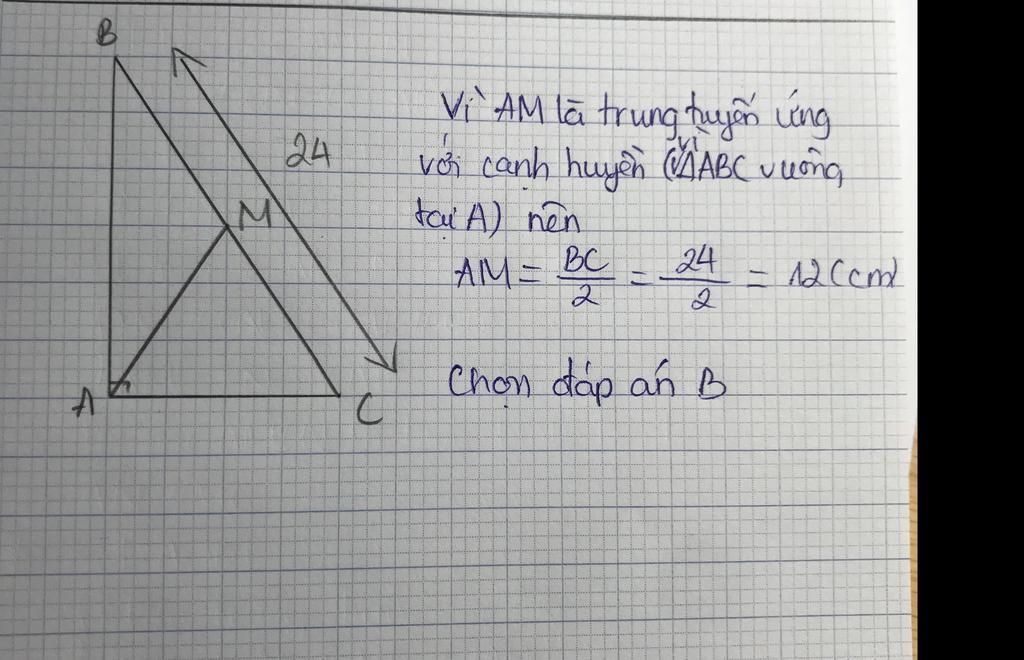 B
24
M
A
C
Vì AM là trung tuyến ứng
với cạnh huyền (vì ΔABC vuông
tại A) nên
AM = BC/2 = 24/2 = 12 (cm)
Chọn đáp án B